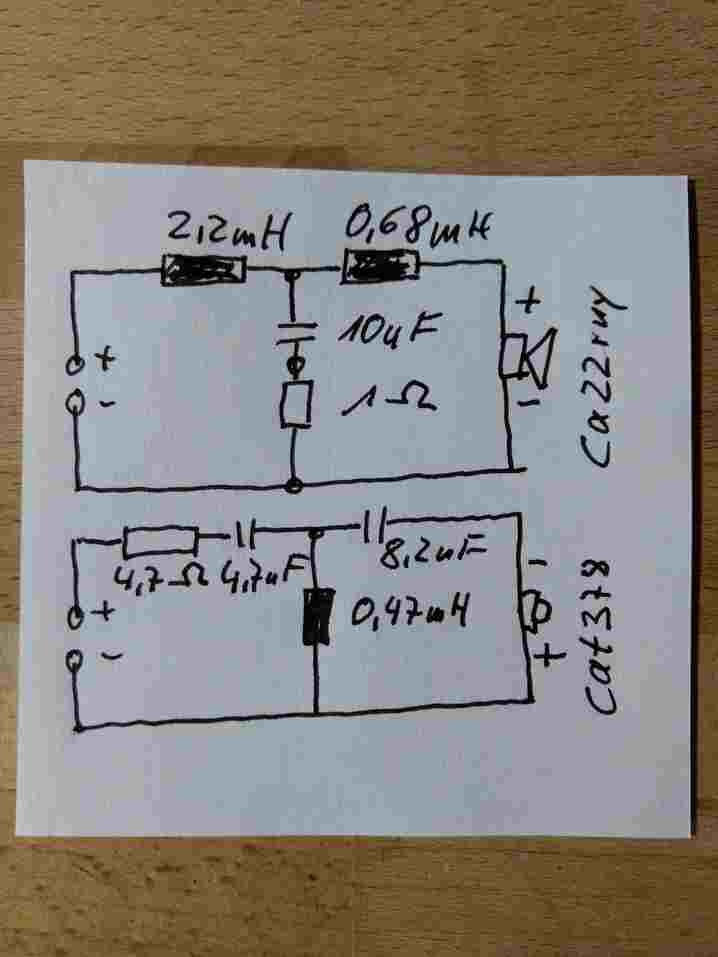 2,2mH 0,68mH
+ 10uF +
- 1Ω -
Ca22rny
4,7Ω 4,7uF 8,2uF -
+ 0,47mH
- +
Cat378